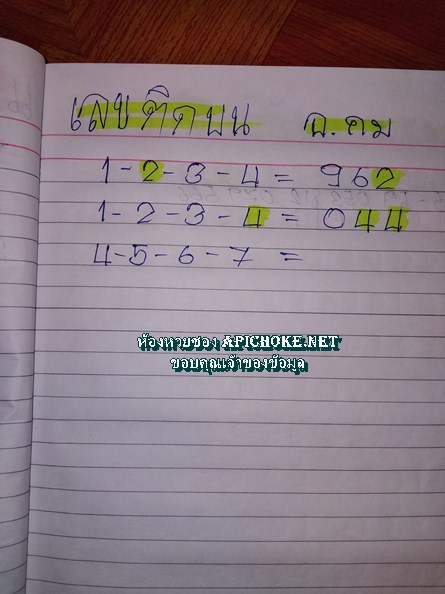 เลขติดบน อ.คม
1-2-3-4 = 962
1-2-3-4 = 044
4-5-6-7 =
ห้องหวยซอง APICHOKE.NET
ขอบคุณเจ้าของข้อมูล